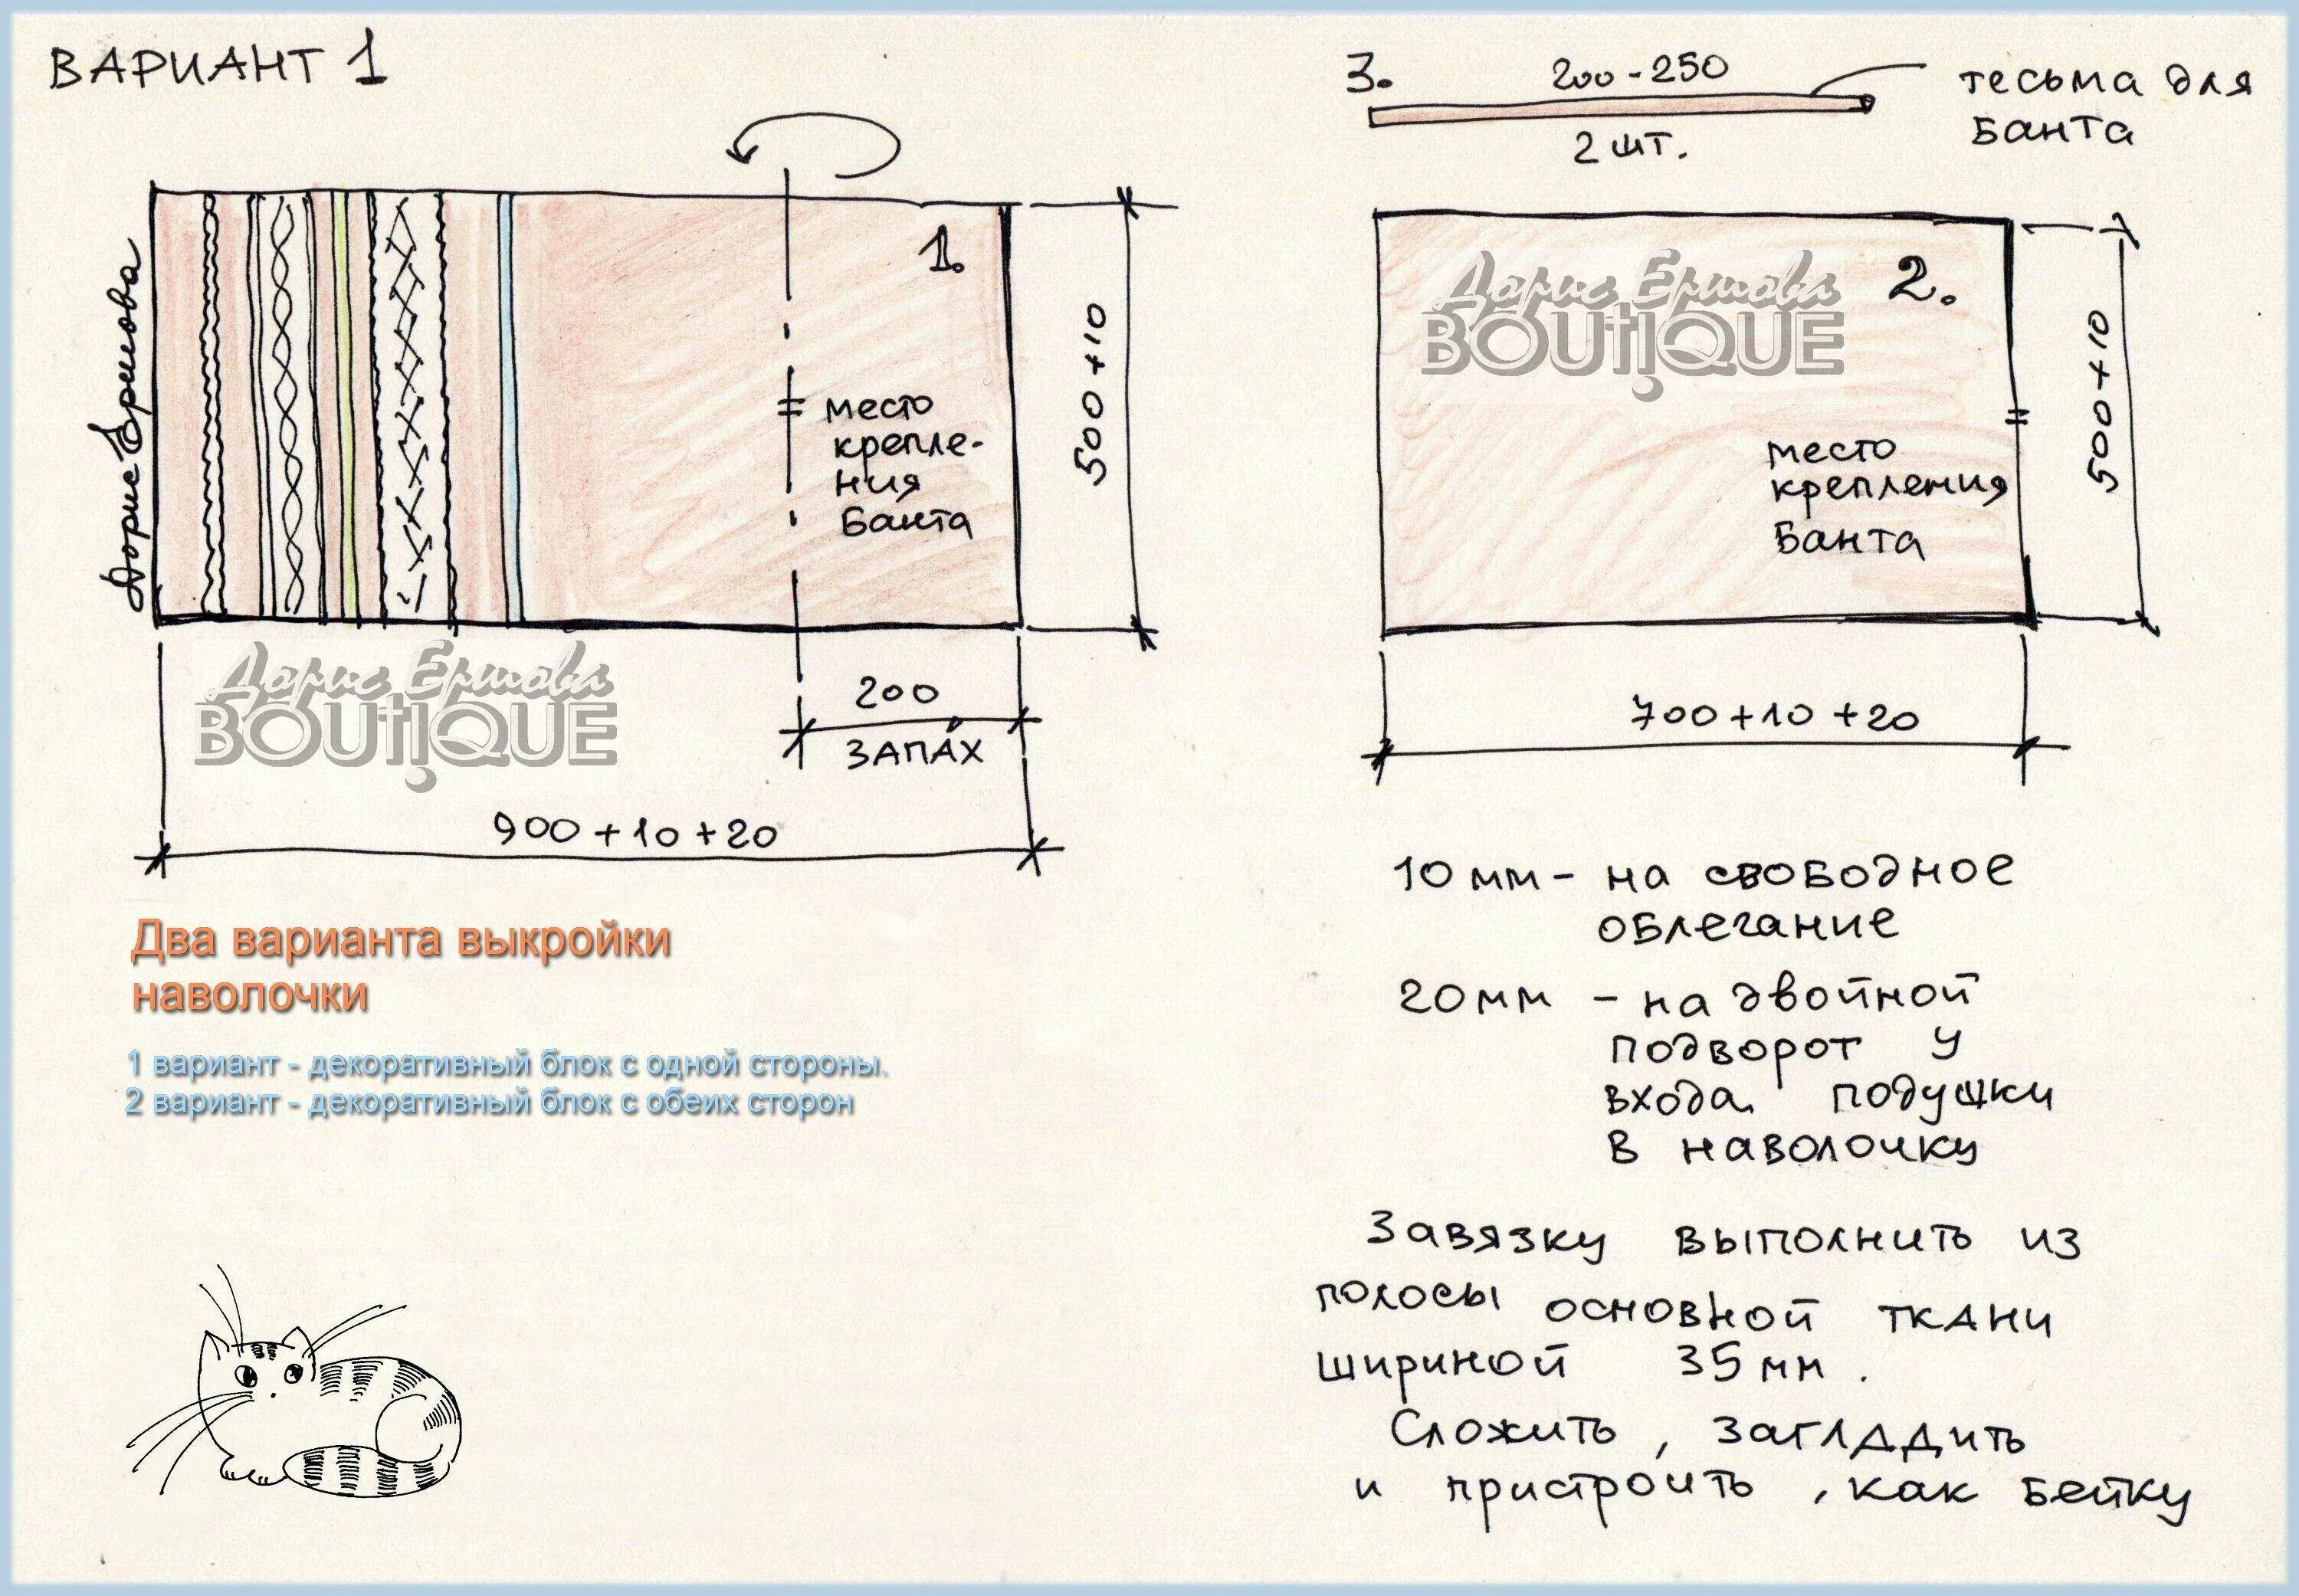 ВАРИАНТ 1
Дорис Ершова
1.
место
крепле-
ния
банта
500+10
200
ЗАПАХ
900+10+20
Дорис Ершова
BOUTIQUE
Два варианта выкройки
наволочки
1 вариант - декоративный блок с одной стороны.
2 вариант - декоративный блок с обеих сторон
3.
200-250
2 шт.
тесьма для
банта
Дорис Ершова
BOUTIQUE
2.
место
крепления
банта
500+10
700+10+20
10 мм - на свободное
облегание
20 мм - на двойной
подворот у
входа подушки
в наволочку
Завязку выполнить из
полосы основной ткани
шириной 35 мм.
Сложить, загладить
и пристроить, как бейку